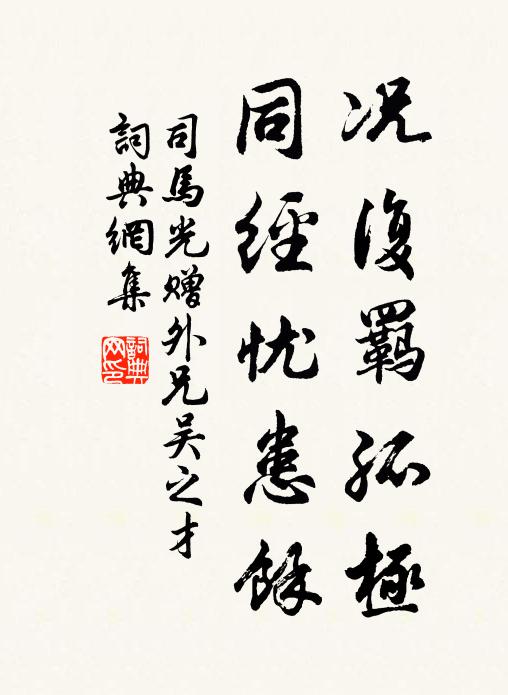 况復羈孤極
同經忧患餘
司馬光贈外兄吴之才
詞典網集
詞典
网印